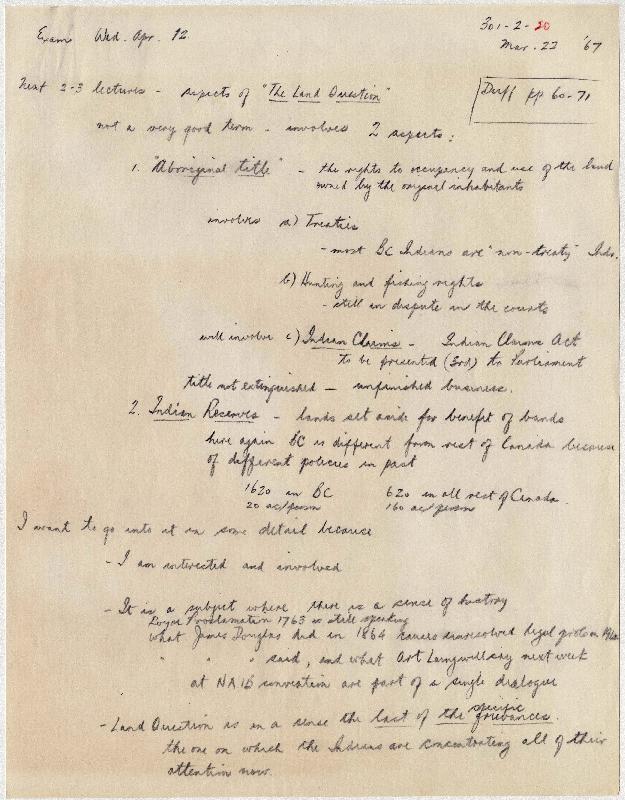 Exam Wed. Apr. 12
301-2-20
Mar. 22 '67
Next 2-3 lectures - aspects of "The Land Question"
Duff pp 60-71
not a very good term - involves 2 aspects:
1. "Aboriginal title" - the rights to occupancy and use of the land
owned by the original inhabitants
involves a) Treaties
- most BC Indians are "non-treaty" Inds.
b) Hunting and fishing rights
- still in dispute in the courts
will involve c) Indian Claims - Indian Claims Act
to be presented (3rd) to Parliament
title not extinguished - unfinished business.
2. Indian Reserves - lands set aside for benefit of bands
here again BC is different from rest of Canada because
of different policies in past
1620 in BC 620 in all rest of Canada.
20 ac/person 160 ac/person
I want to go into it in some detail because
- I am interested and involved
- It is a subject where there is a sense of history
Royal Proclamation 1763 is still speaking
what James Douglas did in 1864 causes unresolved legal
" " " said, and what Art say next week
at NAIB convention are part of a single dialogue
specific
- Land Question is in a sense the last of the grievances.
the one on which the Indians are concentrating all of their
attention now.